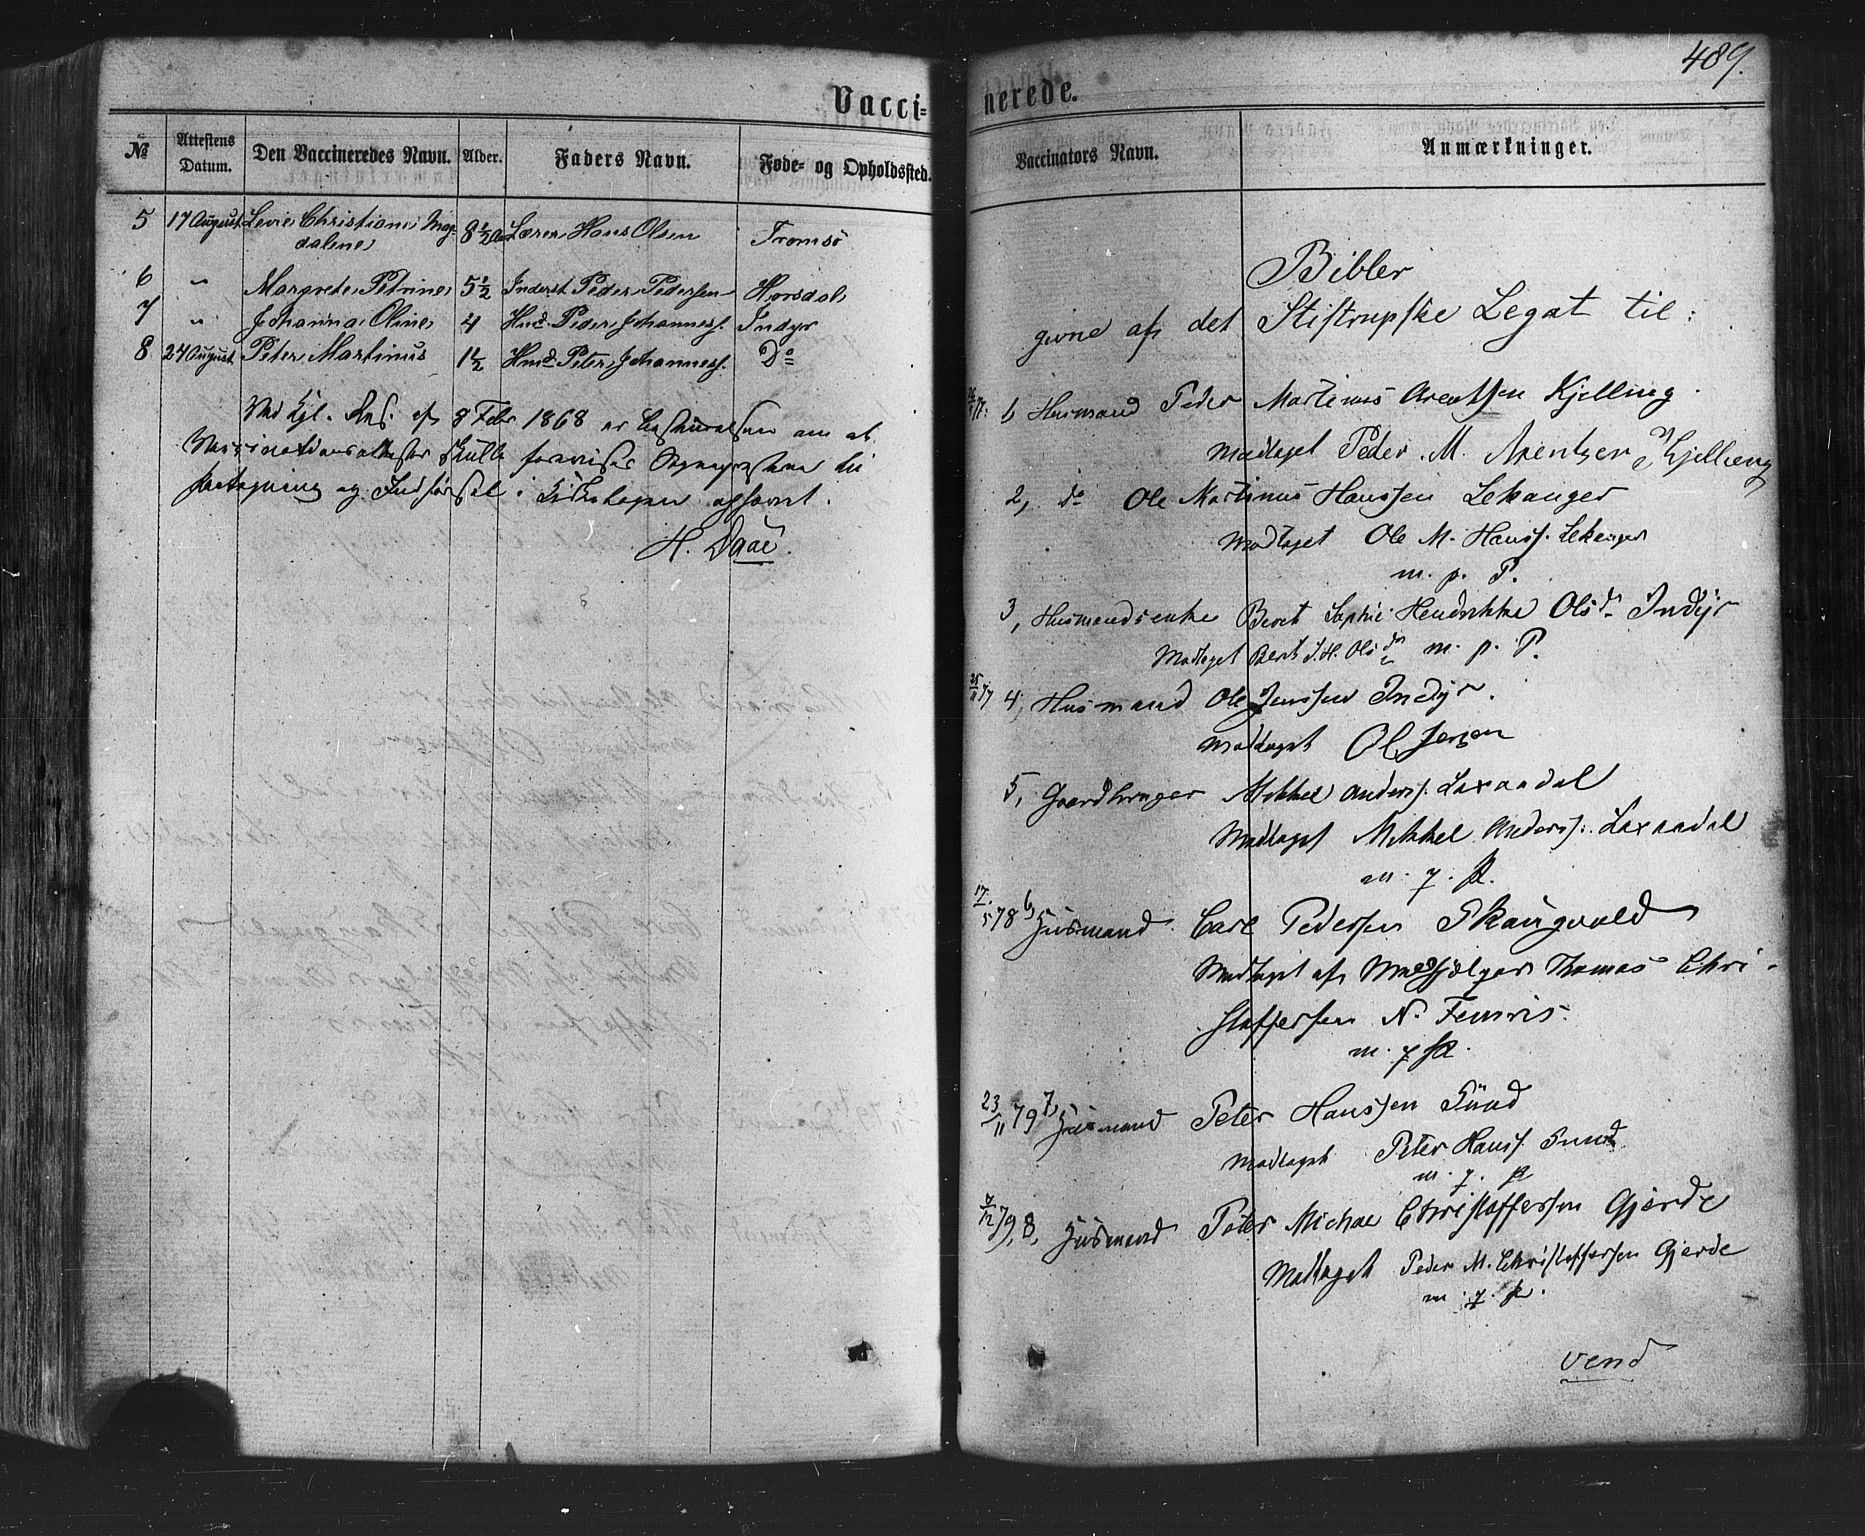 489.
Vaccinerede.
№ Attestens Datum. Den Vaccineredes Navn. Alder. Faders Navn. Føde- og Opholdssted. Vaccinators Navn. Anmærkninger.
5 17 August Christiane Mag- 8½ Lærer Hans Olsen Tromsö
dalene
6 " Margrete Petrine 5½ Inderst Peder Pedersen Horsdal
7 " Johanna Oline 4 Hmd Peder Johanness. Indyr
8 24 August Peter Martinus 1½ Hmd Peter Johanness. Do
Ved Kgl. Res. af 8 Febr 1868 er Bestemmelsen om at
Vaccinationsattester skulle forevises Sognepresterne til
Paategning og Indførsel i Kirkebogen ophævet.
H. Daae.
Bibler
givne af det Stistrupske Legat til:
Husmand Peder Martinus Arentsen Kjelling
Modtaget Peder M. Arentzen Kjelling
2, do Ole Martinus Hanssen Lekanger
Modtaget Ole M. Hanss. Lekanger
m. p. P.
3, Husmandsenke Beret Sophie Hendrikke Olsdr Indyr
Modtaget Beret S. H. Olsdr m. p. P.
25/11 77 4, Husmand Ole Jenssen Indyr.
Modtaget Ol Jensen
5, Gaardbruger Mikkel Anderss. Laxaadal
Modtaget Mikkel Anderss. Laxaadal
m. p. P.
17/5 78 6, Husmand Carl Pedersen Skaugvold
Modtaget af Medhjælper Thomas Chri-
stoffersen N. Femris.
m. p. P.
23/11 79 7, Husmand Peter Hanssen Sund
Modtaget Peter Hanss. Sund
m. p. P.
/12 79, 8, Husmand Peter Michael Christoffersen Gjerde
Modtaget Peder M. Christoffersen Gjerde
m. p. P.
vend